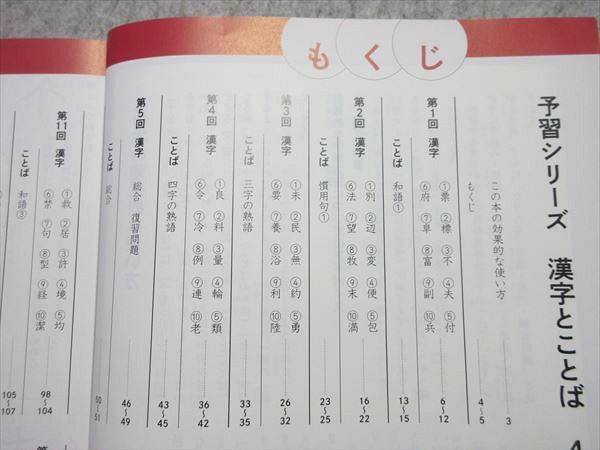 もくじ
予習シリーズ 漢字とことば 4
この本の効果的な使い方 3
もくじ 4〜5
第1回 漢字 ①票 ②標 ③不 ④夫 ⑤付
⑥府 ⑦阜 ⑧富 ⑨副 ⑩兵 6〜12
ことば 和語① 13〜15
第2回 漢字 ①別 ②辺 ③変 ④便 ⑤包
⑥法 ⑦望 ⑧牧 ⑨末 ⑩満 16〜22
ことば 慣用句① 23〜25
第3回 漢字 ①未 ②民 ③無 ④約 ⑤勇
⑥要 ⑦養 ⑧浴 ⑨利 ⑩陸 26〜32
ことば 三字の熟語 33〜35
第4回 漢字 ①良 ②料 ③量 ④輪 ⑤類
⑥令 ⑦冷 ⑧例 ⑨連 ⑩老 36〜42
ことば 四字の熟語 43〜45
第5回 漢字 総合 復習問題 46〜49
ことば 総合 50〜51
第11回 漢字 ①救 ②居 ③許 ④境 ⑤均
⑥禁 ⑦句 ⑧型 ⑨経 ⑩潔 98〜104
ことば 和語③ 105〜107